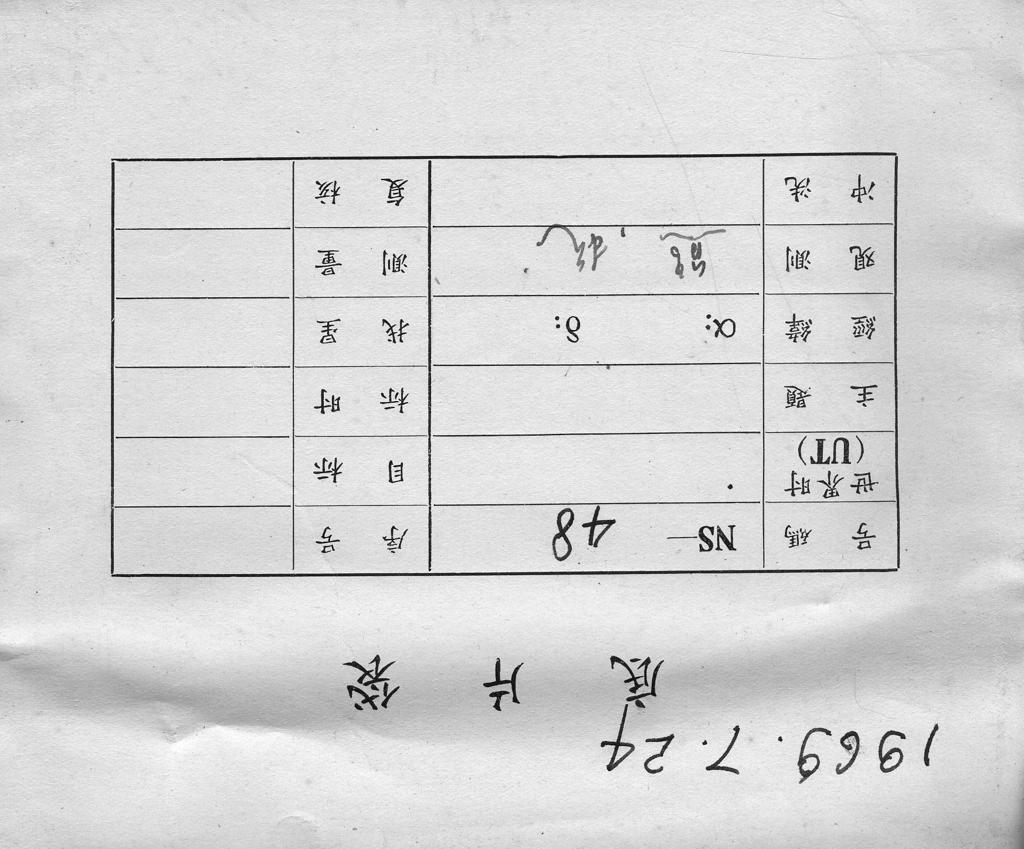 1969.7.24
底 片 袋
号 碼 NS— 48 序 号
世界时(UT) 目 标
主 題 标 时
經 緯 α: δ: 找 星
观 测 测 量
冲 洗 复 核